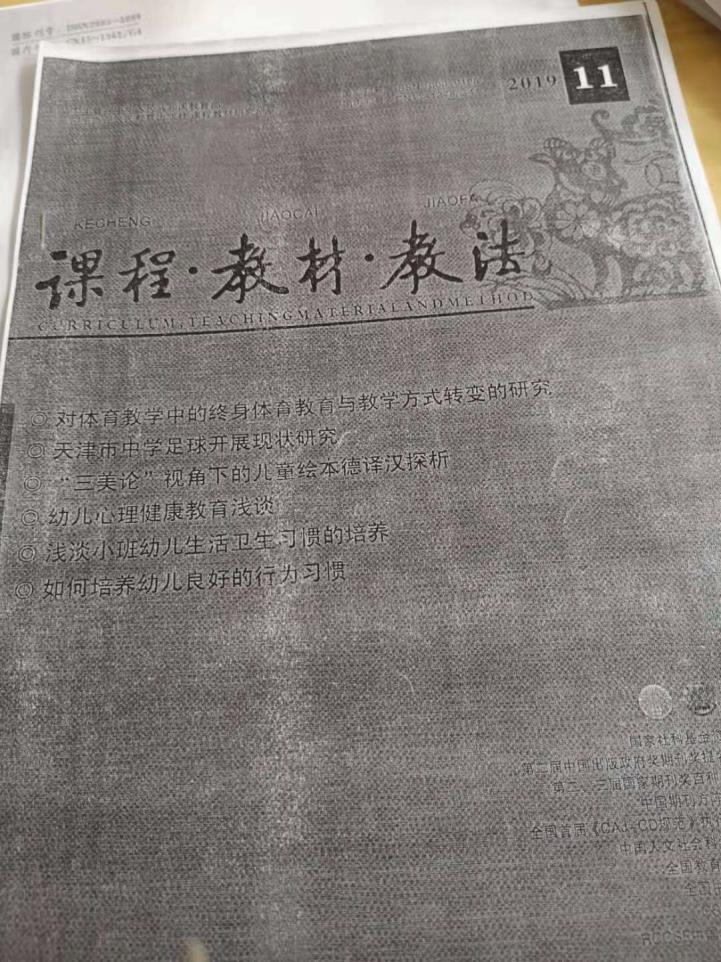 2019 11
KECHENG JIAOCAI JIAOFA
课程·教材·教法
CURRICULUM,TEACHINGMATERIALANDMETHOD
◎ 对体育教学中的终身体育教育与教学方式转变的研究
◎ 天津市中学足球开展现状研究
◎ “三美论”视角下的儿童绘本德译汉探析
◎ 幼儿心理健康教育浅谈
◎ 浅淡小班幼儿生活卫生习惯的培养
◎ 如何培养幼儿良好的行为习惯
国家社科基金
第二届中国出版政府奖期刊奖提
第二、三届国家期刊奖百种
中国期刊方
全国首届《CAJ-CD规范》
中国人文社会科
全国教育
全国
RCCSE